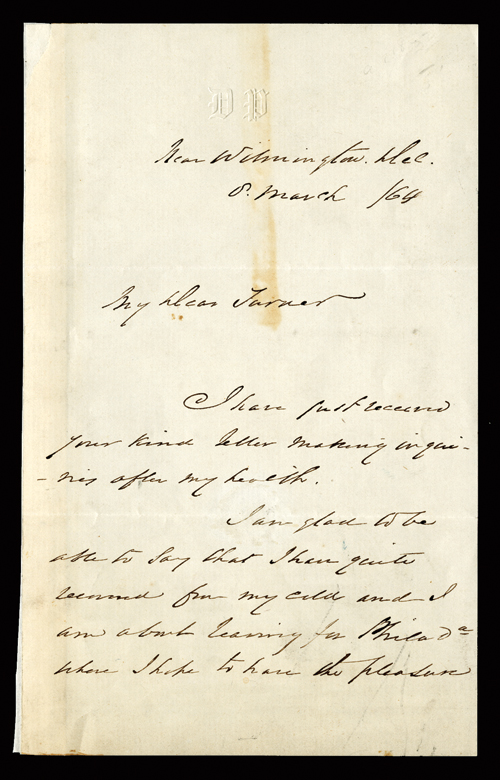 D P
Near Wilmington. Del.
8. March /64
My Dear Turner
I have just received
your kind letter making inqui-
-ries after my health.
I am glad to be
able to say that I have quite
recovered from my cold and I
am about leaving for Philada
where I hope to have the pleasure